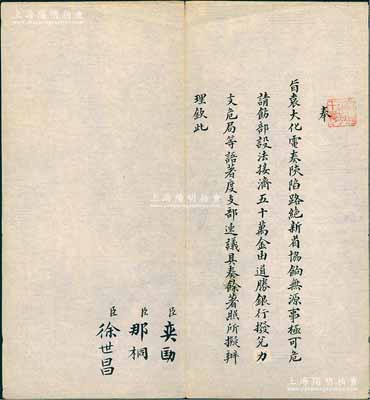 奉
旨袁大化電奏陝陷路絕新省協餉無源事極可危
請飭部設法接濟五十萬金由道勝銀行撥兌力
支危局等語著度支部速議具奏餘著照所擬辦
理欽此
臣奕劻
臣那桐
臣徐世昌
上海陽明拍賣
上海陽明拍賣
上海陽明拍賣